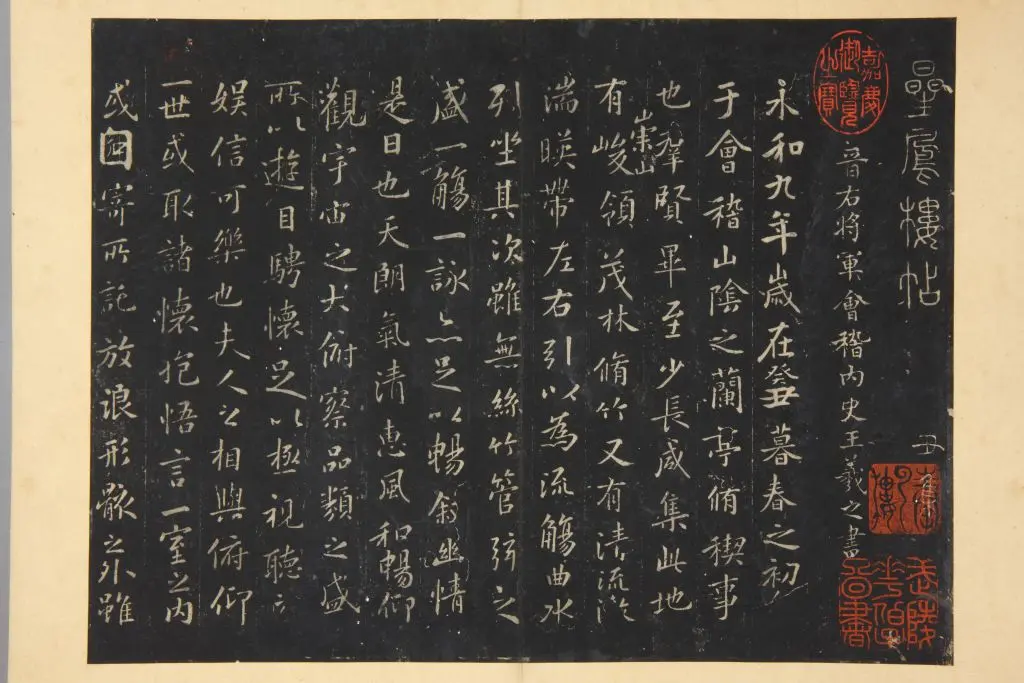 曐鳳樓帖 丑
嘉慶御覽之寶
晉右將軍會稽內史王羲之書
永和九年歲在癸丑暮春之初
于會稽山陰之蘭亭脩稧事
也羣賢畢至少長咸集此地
有崇山峻領茂林脩竹又有清流激
湍暎帶左右引以為流觴曲水
列坐其次雖無絲竹管弦之
盛一觴一詠亦足以暢敘幽情
是日也天朗氣清惠風和暢仰
觀宇宙之大俯察品類之盛
所以遊目騁懷足以極視聽之
娛信可樂也夫人之相與俯仰
一世或取諸懷抱悟言一室之內
或因寄所託放浪形骸之外雖